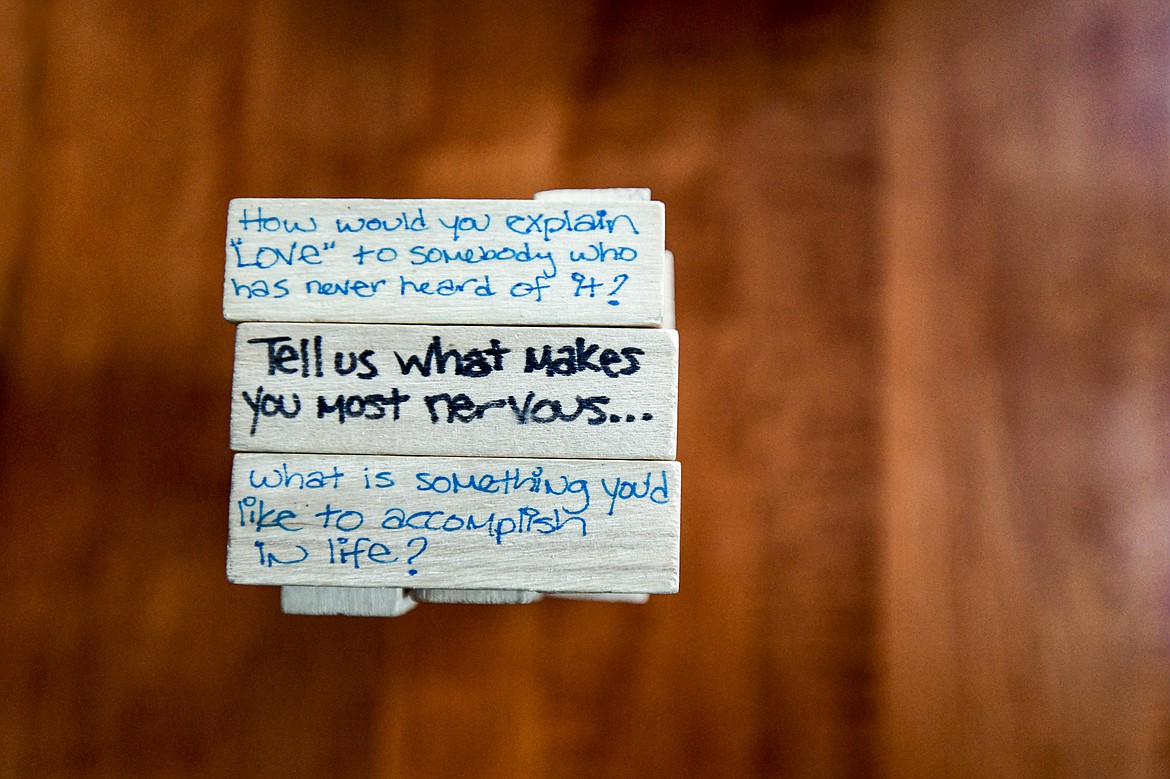 How would you explain
"Love" to somebody who
has never heard of it?
Tell us what makes
you most nervous...
what is something you'd
like to accomplish
in life?